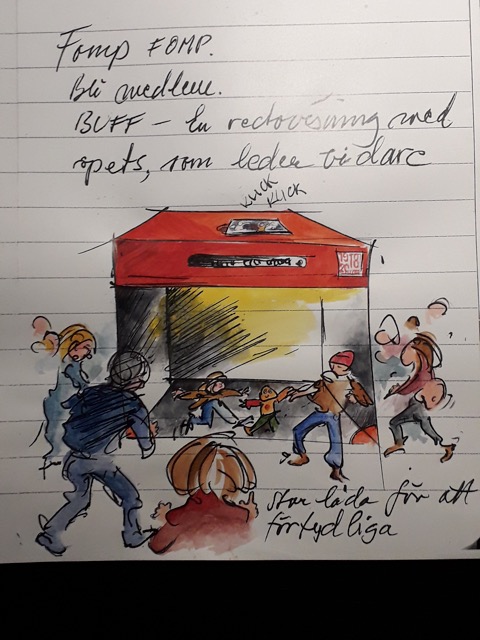 Fomp FOMP.
Bli medlem.
BUFF – En redovisning med
spets, som leder vidare
KLICK
KLICK
stor låda för att
förtydliga